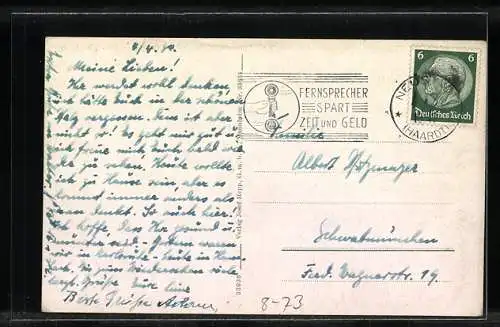 Meine Lieben!
Ihr werdet wohl denken
ich hätte Euch in der schönen
Pfalz vergessen. Dem ist aber
nicht so! Es geht mir gut u.
ich freue mich Euch bald wie-
der zu sehen. Heute wollte
ich zu Hause sein, aber es
kommt immer anders als
man denkt. So auch hier!
Ich hoffe, dass Ihr gesund u.
munter seid. Gestern waren
wir in Karlsruhe - heute in
Bis zum Wiedersehen viele
Grüße Eure
Beste Grüße
FERNSPRECHER
SPART
ZEIT UND GELD
6 6
Deutsches Reich
(HAARDT)
Familie
Albert
Schwabmünchen
Ferd. Wagnerstr. 19.
8-73